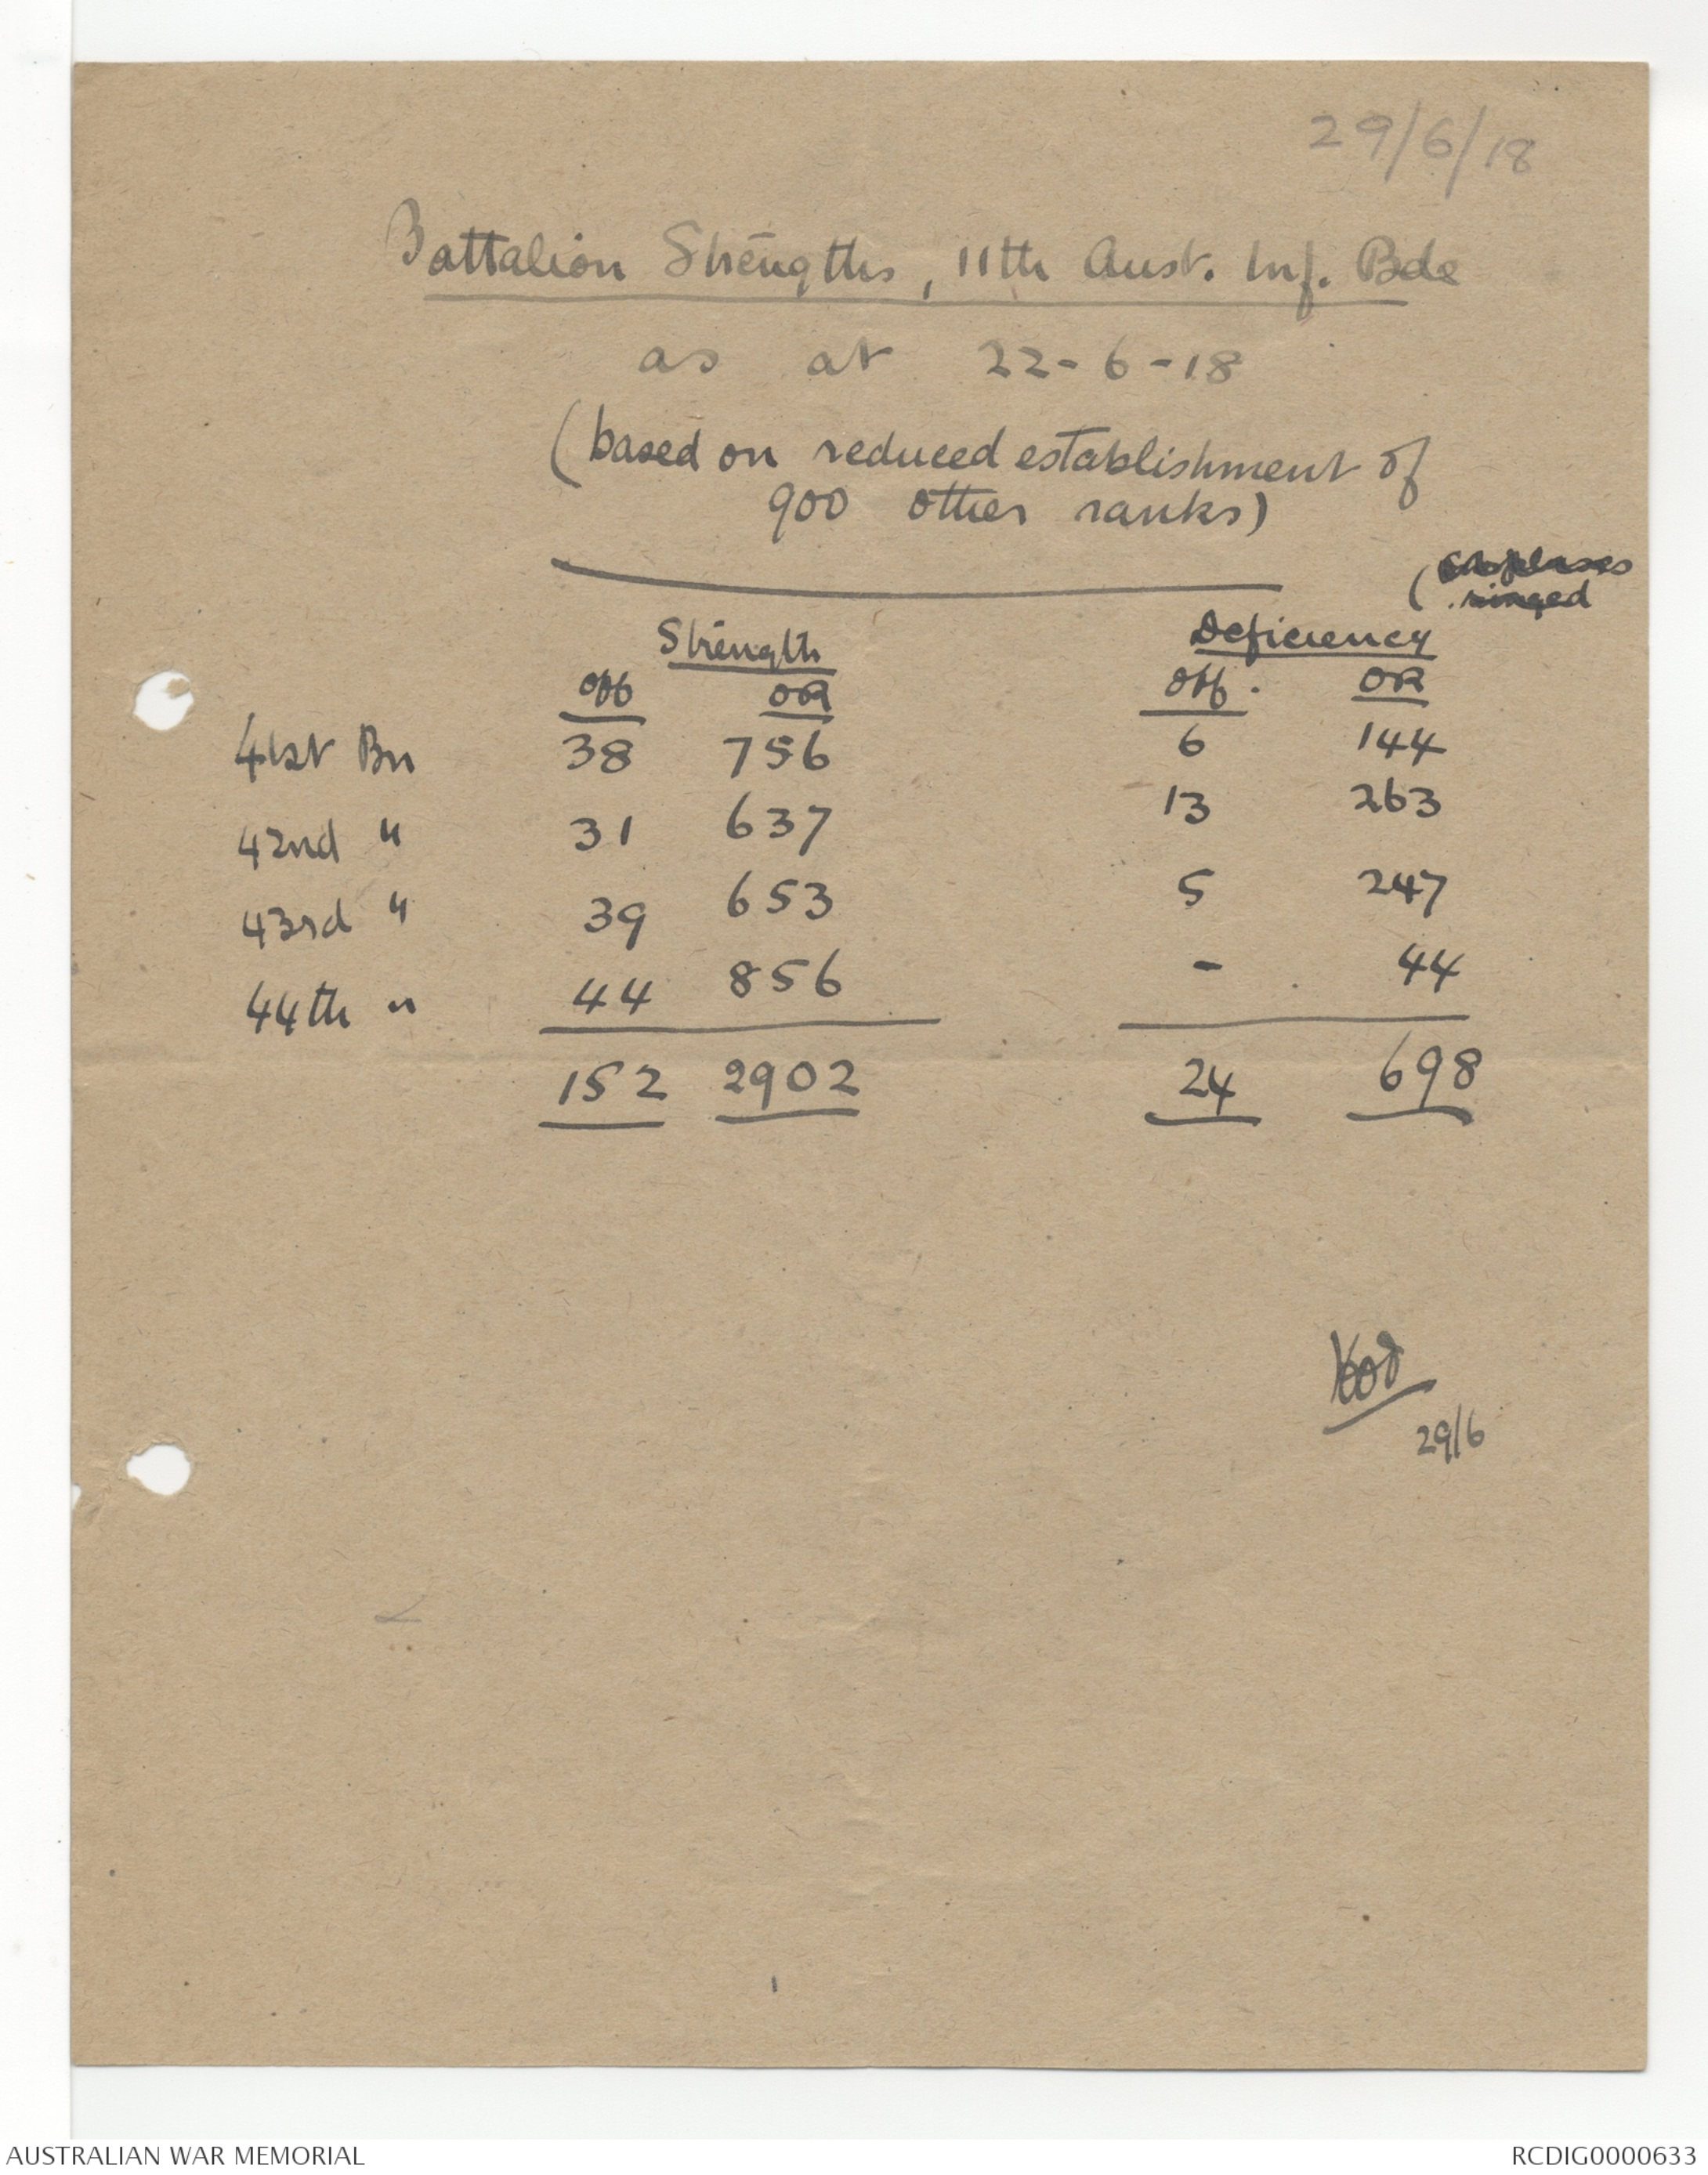 29/6/18
Battalion Strengths, 11th Aust. Inf. Bde
as at 22-6-18
(based on reduced establishment of
900 other ranks)
(surpluses
ringed
Strength Deficiency
Off OR Off. OR
41st Bn 38 756 6 144
42nd " 31 637 13 263
43rd " 39 653 5 247
44th " 44 856 - 44
152 2902 24 698
29/6
AUSTRALIAN WAR MEMORIAL RCDIG0000633